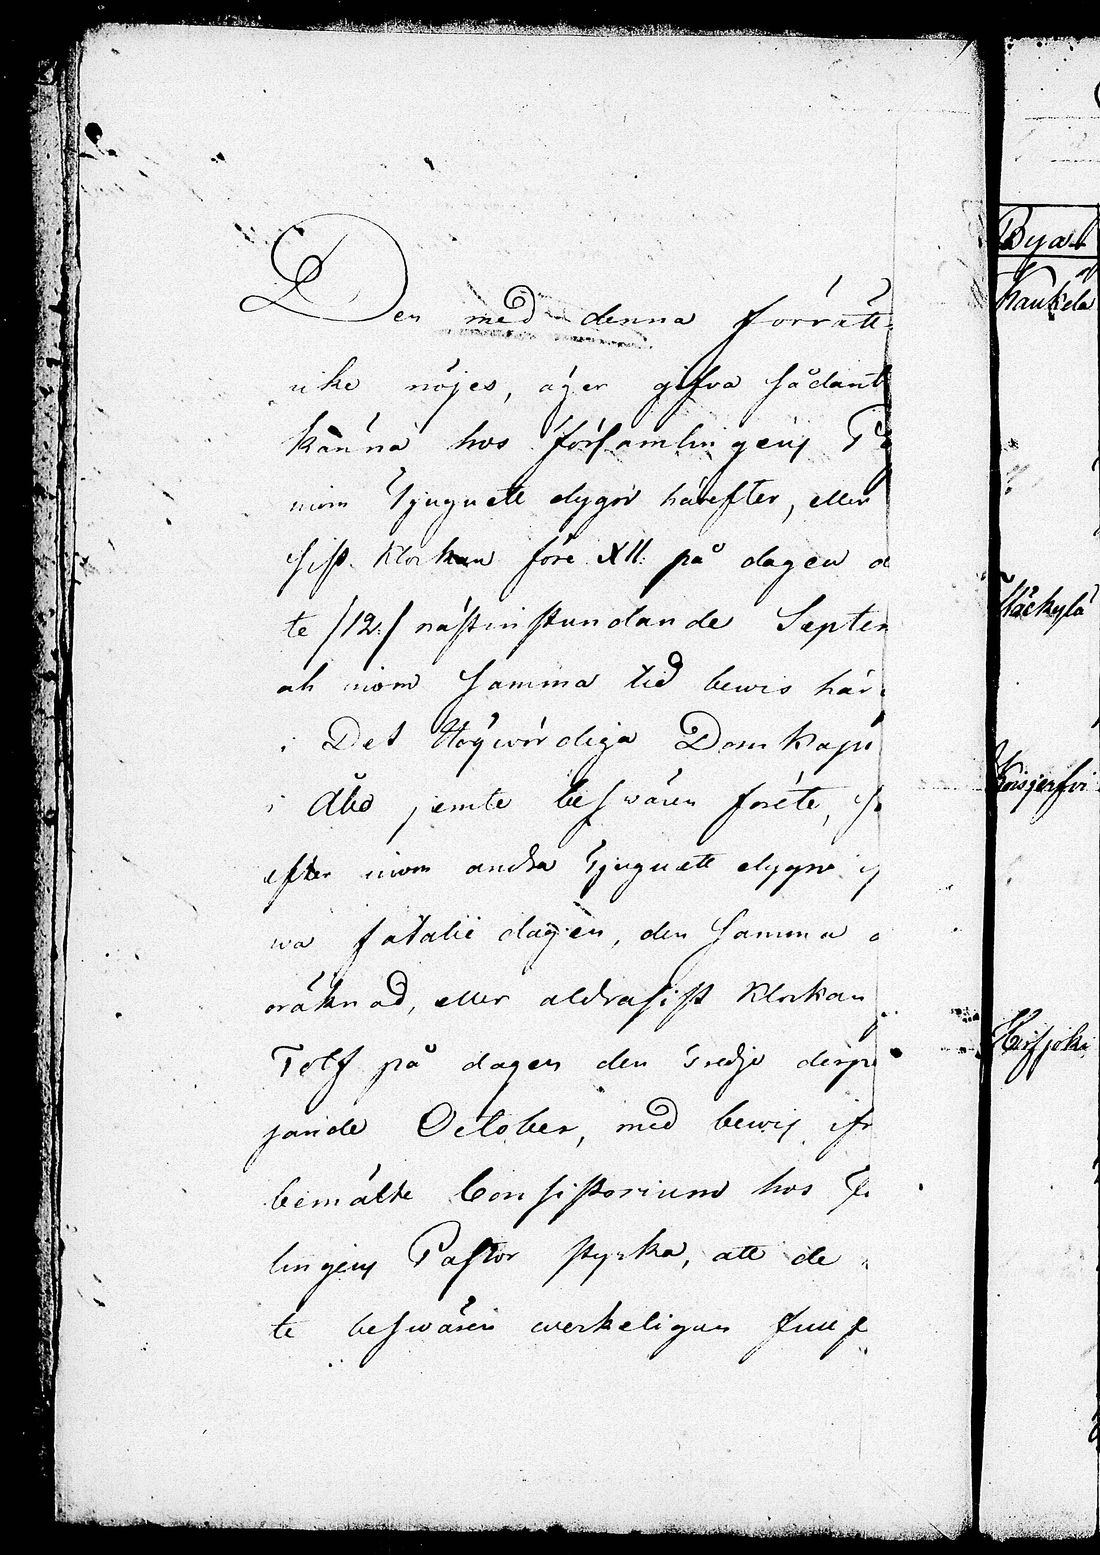 Den med denna förrätt
icke nöjes, äger gifva sådant
känna hos församlingens Pa
inom Tjuguett dygn härefter, eller
sist klockan före XII. på dagen d
te /12./ nästinstundande Septem
ah inom samma tid bewis här
i Det Högwördiga Domkapi
i Åbo jemte beswären förete, s
efter inom andra Tjuguett dygn
wa fatalie dagen, den samma o
oräknad, eller aldrasist klockan
Tolf på dagen den Tredje derpå
jande October, med bewis ifr
bemälte Consistorium hos Fö
lingens Pastor styrka, att de
te beswären werkeligen full f
Byar
Kaukola
Häckylä
Koisjerfvi